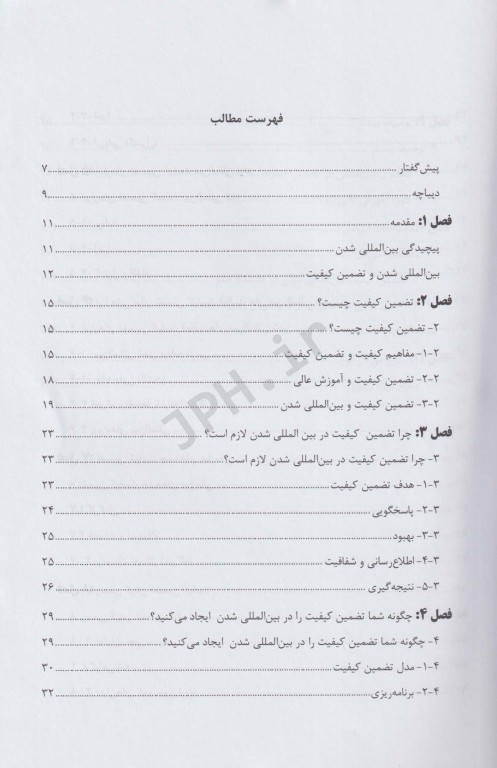 فهرست مطالب
پیش‌گفتار ........ ۷
دیباچه ........ ۹
فصل ۱: مقدمه ........ ۱۱
پیچیدگی بین‌المللی شدن ........ ۱۱
بین‌المللی شدن و تضمین کیفیت ........ ۱۲
فصل ۲: تضمین کیفیت چیست؟ ........ ۱۵
۲- تضمین کیفیت چیست؟ ........ ۱۵
۲-۱- مفاهیم کیفیت و تضمین کیفیت ........ ۱۵
۲-۲- تضمین کیفیت و آموزش عالی ........ ۱۸
۲-۳- تضمین کیفیت و بین‌المللی شدن ........ ۱۹
فصل ۳: چرا تضمین کیفیت در بین المللی شدن لازم است؟ ........ ۲۳
۳- چرا تضمین کیفیت در بین‌المللی شدن لازم است؟ ........ ۲۳
۳-۱- هدف تضمین کیفیت ........ ۲۳
۳-۲- پاسخگویی ........ ۲۴
۳-۳- بهبود ........ ۲۵
۳-۴- اطلاع‌رسانی و شفافیت ........ ۲۵
۳-۵- نتیجه‌گیری ........ ۲۶
فصل ۴: چگونه شما تضمین کیفیت را در بین‌المللی شدن ایجاد می‌کنید؟ ........ ۲۹
۴- چگونه شما تضمین کیفیت را در بین‌المللی شدن ایجاد می‌کنید؟ ........ ۲۹
۴-۱- مدل تضمین کیفیت ........ ۳۰
۴-۲- برنامه‌ریزی ........ ۳۲
JPH.ir